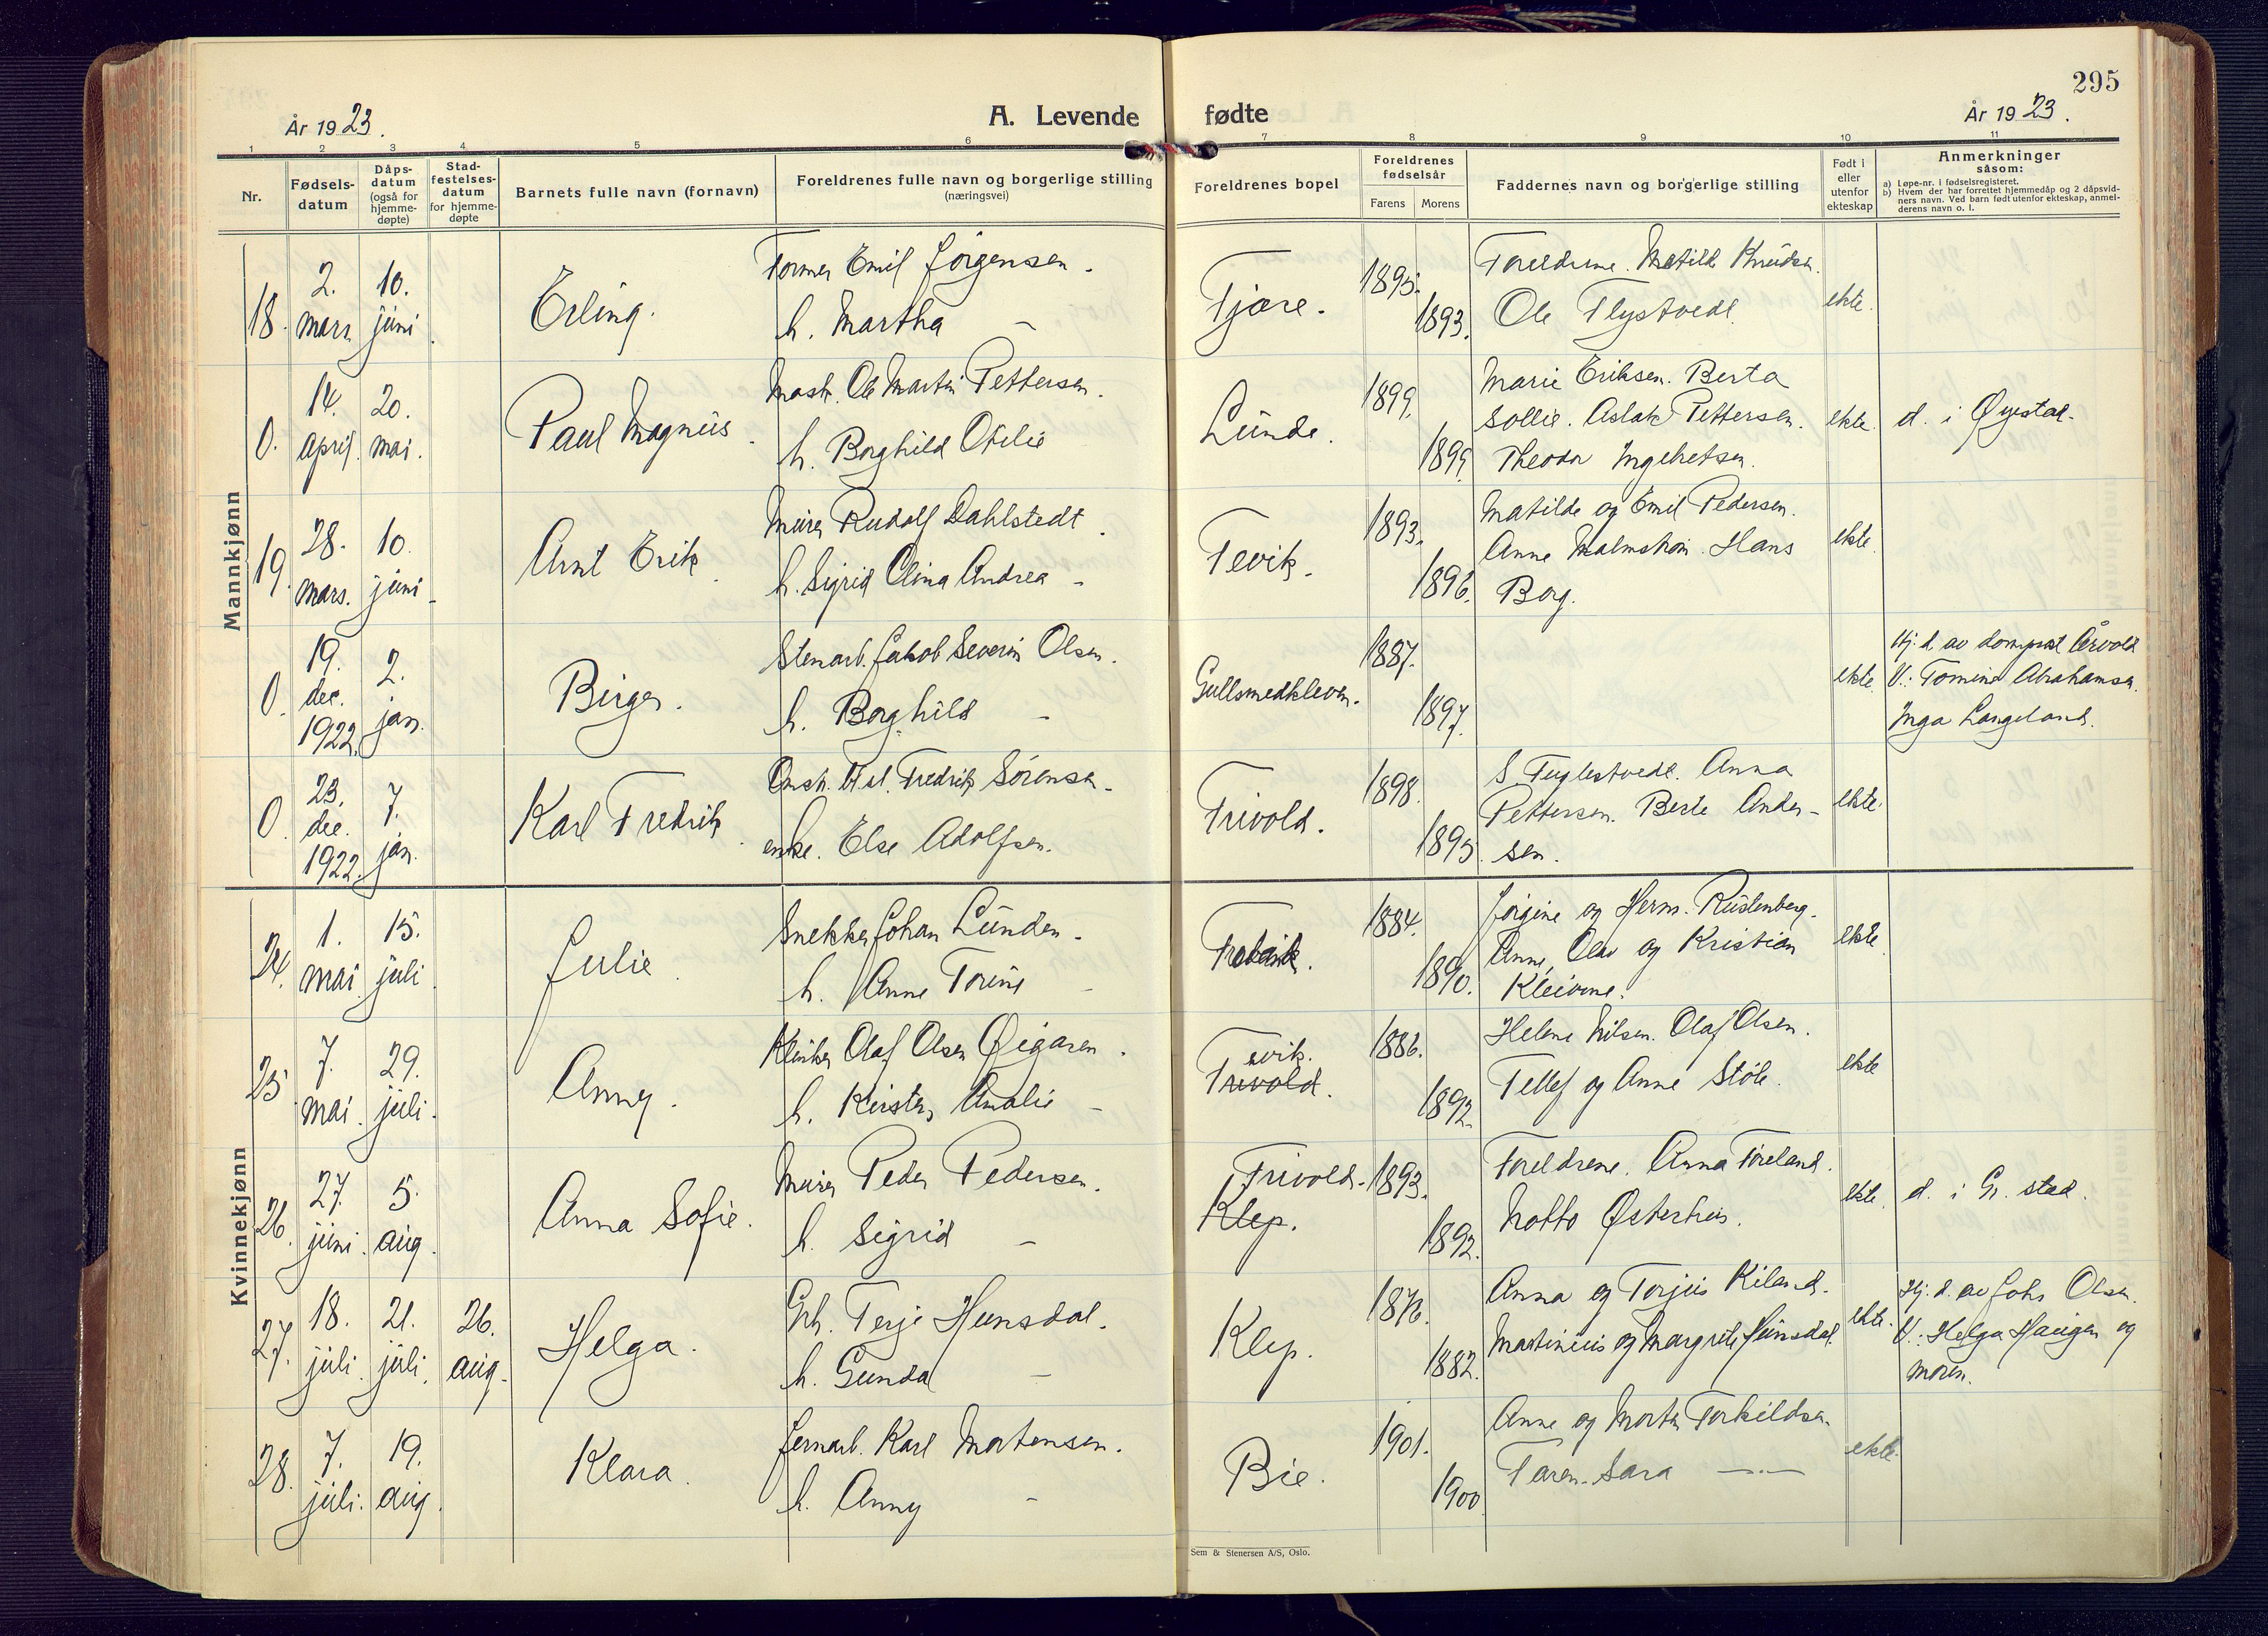 295
År 1923.
A. Levende fødte
År 1923.
1 2 3 4 5 6 7 8 9 10 11
Nr.
Fødsels-
datum
Dåps-
datum
(også for
hjemme-
døpte)
Stad-
festelses-
datum
for hjemme-
døpte
Barnets fulle navn (fornavn)
Foreldrenes fulle navn og borgerlige stilling
(næringsvei)
Foreldrenes bopel
Foreldrenes
fødselsår
Farens Morens
Faddernes navn og borgerlige stilling
Født i
eller
utenfor
ekteskap
Anmerkninger
såsom:
a) Løpe-nr. i fødselsregisteret.
b) Hvem der har forrettet hjemmedåp og 2 dåpsvid-
ners navn. Ved barn født utenfor ekteskap, anmel-
derens navn o. l.
Mannkjønn
18. 2. mars 10. juni
Erling.
Former Emil Jörgensen.
h. Martha –
Fjære.
1895.
1893.
Foreldrene. Matilde Knudsen.
Ole Flystvedt.
ekte.
0. 14. april. 20. mai.
Paul Magnus.
Mask. Ole Martin Pettersen.
h. Borghild Otelie
Lunde.
1899.
1899
Marie Eriksen. Berta
Sollie. Aslak Pettersen.
Theodor Ingebretsen.
ekte.
d. i Øyestad.
19. 28. mars. 10. juni
Arnt Erik.
Murer Rudolf Dahlstedt.
h. Sigrid Elina Andrea –
Fevik.
1893.
1896.
Matilde og Emil Pedersen.
Anne Malmstrøm. Hans
Borg.
ekte.
0. 19. dec. 1922. 2. jan.
Birger.
Stenarb. Jakob Severin Olsen.
h. Borghild –
Gullsmedkleven.
1887.
1897.
ekte.
Hj. d. av domprost Årvold
V.: Tomine Abrahamsen.
Inga Langeland.
0. 23. dec. 1922. 7. jan.
Karl Fredrik.
Fredrik Sörensen.
enke. Else Adolfsen.
Frivold.
1898.
1895.
S. Fuglestvedt. Anna
Pettersen. Berte Ander-
sen.
ekte.
Kvinnekjønn
24. 1. mai 15. juli
Julie.
Snekker Johan Lunden.
h. Anne Torine –
1884.
1890.
Jörgine og Herm. Rustenberg.
Anne, Olav og Kristian
Kleivene.
ekte
25. 7. mai. 29. juli.
Anny.
Klinker Olaf Olsen Øigaren.
h. Kirsten Amalie –
evik.
Frivold.
1886.
1892.
Helene Nilsen. Olaf Olsen.
Tellef og Anne Støle.
ekte
26. 27. juni. 5. aug.
Anna Sofie.
Murer Peder Pedersen.
h. Sigrid –
Frivold.
Klep.
1893.
1892.
Foreldrene. Anna Föreland.
Notto Østerhus.
ekte.
d. i Gr. stad.
27. 18. juli. 21. juli. 26. aug.
Helga.
Grh. Terje Hunsdal.
h. Gunda –
Klep.
1876.
1882.
Anna og Torjus Kiland.
Martinius og Margrete Hunsdal
ekte.
Hj. d. av Johs Olsen.
V.: Helga Haugen og
moren.
28. 7. juli. 19. aug.
Klara.
Jernarb. Karl Mortensen.
h. Anny –
Bie.
1901.
1900
Anne og Morten Torkildsen.
Faren. Sara –"–
ekte.
Sem & Stenersen A/S, Oslo.